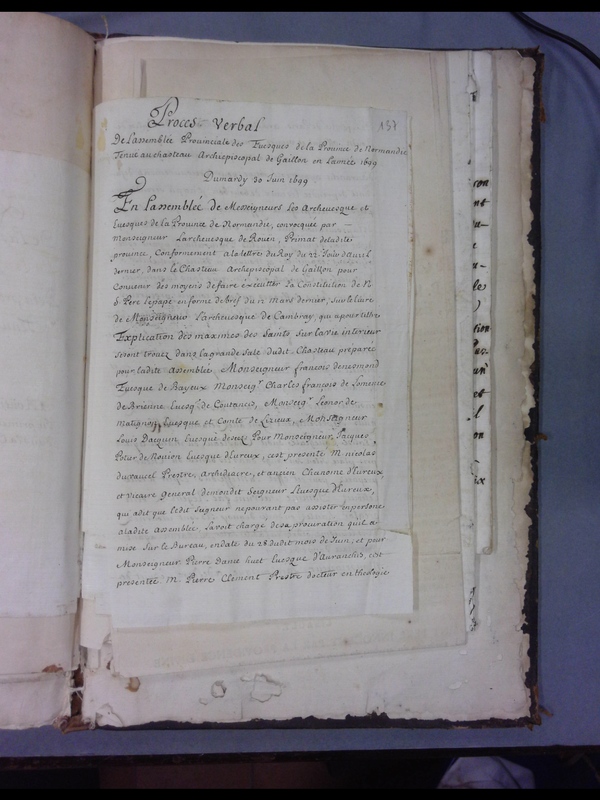 157
Proces Verbal
De Lassemblée Provinciale des Evesques de la Province de Normandie
Tenue au chasteau Archiepiscopal de Gaillon en Lannée 1699
Du mardy 30 Juin 1699
En Lassemblée de Messeigneurs Les Archevesque et
Evesques de la Province de Normandie, convocquée par
Monseigneur Larchevesque de Rouen, Primat de ladite
province, Conformement a la lettre du Roy du 22 Jour d'avril
dernier, dans le Chasteau Archiepiscopal de Gaillon pour
Convenir des moyens de faire executter La Constitution de N
S Pere Lepape en forme de bref du 12 mars dernier, sur le livre
de Monseigneur Larchevesque de Cambray, qui a pour tiltre
Explication des maximes des Saints sur la vie interieur
se sont trouvez dans la grande Sale dudit Chasteau preparée
pour ladite Assemblée, Monseigneur francois de nesmond
Evesque de Bayeux Monseigr Charles francois de Lomenie
de Brienne Evesq. de Coutances, Monseigr Leonor de
matignon Evesque et Comte de Lizieux, Monseigneur
Louis Dacquin, Evesque de seés Pour Monseigneur Jacques
Potier de Novion Evesque d'Evreux, cest presenté M nicolas
duvaucel Prestre, Archidiacre, et ancien Chanoine d'Evreux,
et Vicaire General de mondit Seigneur Levesque d'Evreux,
qui a dit que ledit Seigneur ne pouvant pas assister en personne
a ladite Assemblée, Lavoit chargé de sa procuration quil a
mise sur le Bureau, en date du 28 dudit mois de Juin, et pour
Monseigneur Pierre Daniel huet Evesque d'Avranches, cest
presentée M. Pierre Clement Prestre docteur en theologie